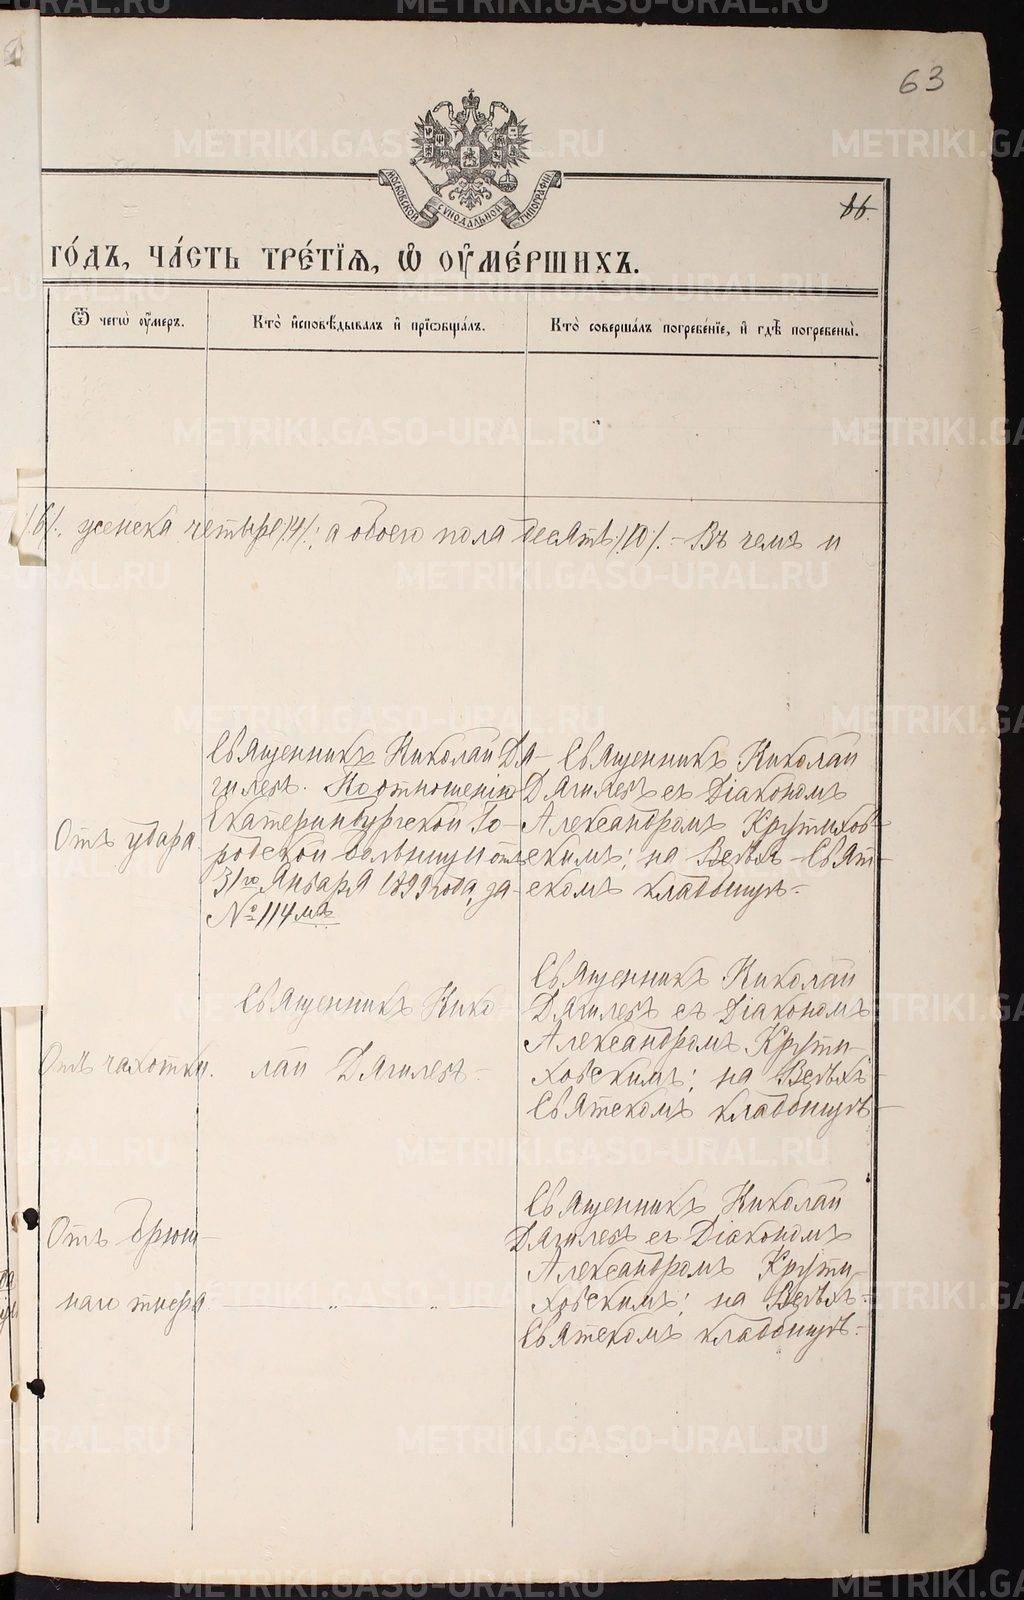 63
66.
МОСКОВСКОЙ СѴНОДАЛЬНОЙ ТИПОГРАФІИ
ГО́ДЪ, ЧА́СТЬ ТРЕ́ТІѦ, Ѡ҆ ОУ҆МЕ́РШИХЪ.
Ѿ чегѡ̀ оу҆́меръ.
Кто̀ и҆сповѣ́дывалъ и҆ прїѡбща́лъ.
Кто̀ соверша́лъ погребе́нїе, и҆ гдѣ̀ погребены̀.
/6/. женска четыре /4/; а обоего пола десять /10/. – Въ чемъ и
Отъ удара
Священникъ Николай Дя-
гилевъ. По отношенію
Екатеринбургской Го-
родской больницы отъ
31го Января 1899 года, за
№ 114мъ
Священникъ Николай
Дягилевъ съ Діакономъ
Александромъ Крутихов-
скимъ; на Верхъ-Исят-
скомъ кладбищѣ.
Отъ чахотки.
Священникъ Нико-
лай Дягилевъ
Священникъ Николай
Дягилевъ съ Діакономъ
Александромъ Крути-
ховскимъ; на Верхъ-
Исятскомъ кладбищѣ
Отъ брюш-
наго тифа
" "
Священникъ Николай
Дягилевъ съ Діакономъ
Александромъ Крути-
ховскимъ; на Верхъ-
Исятскомъ кладбищѣ.
METRIKI.GASO-URAL.RU